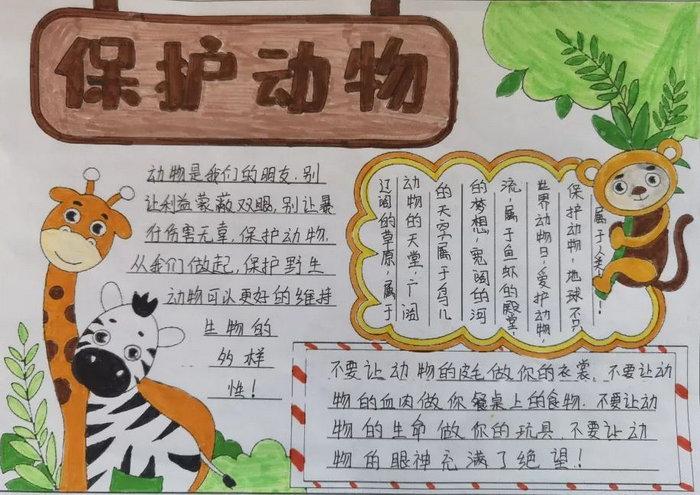 保护动物
动物是我们的朋友.别
让利益蒙蔽双眼,别让暴
行伤害无辜,保护动物.
从我们做起,保护野生
动物可以更好的维持
生物的
多样
性!
辽阔的草原,属于
动物的天堂,广阔
的天空属于鸟儿
的梦想,宽阔的河
流,属于鱼虾的殿堂,
世界动物日,爱护动物,
保护动物,地球不只
属于人类!
不要让动物的皮毛做你的衣裳,不要让动
物的血肉做你餐桌上的食物.不要让动
物的生命做你的玩具,不要让动
物的眼神充满了绝望!